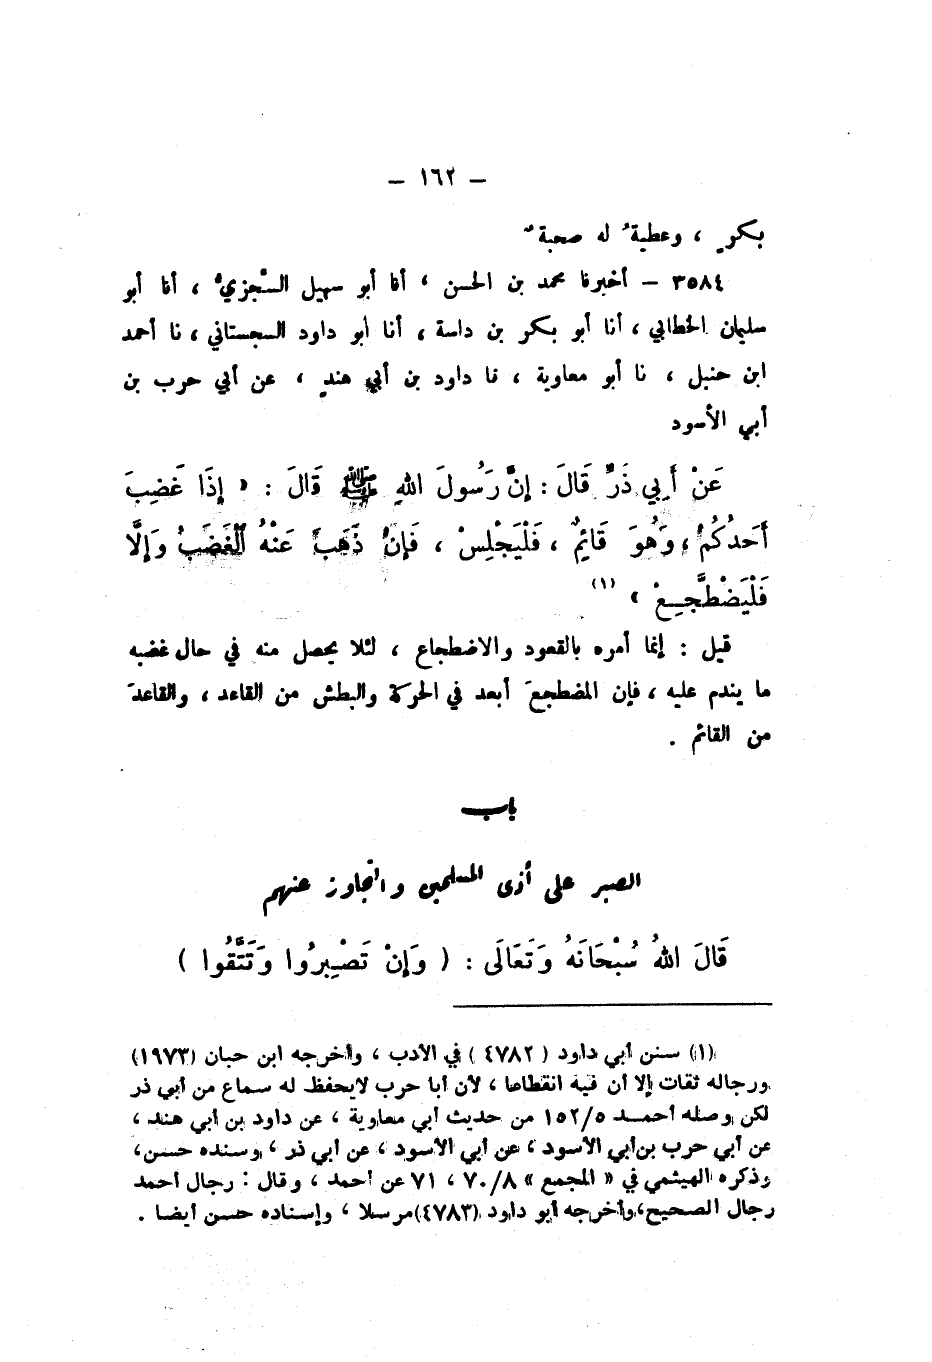 – ١٦٢ –
بكرٍ ، وعطيةُ له صحبةٌ
٣٥٨٤ – أخبرنا محمد بن الحسن ، أنا أبو سهيل السِّجزيُّ ، أنا أبو
سليمان الخطابي ، أنا أبو بكر بن داسة ، أنا أبو داود السجستاني ، نا أحمد
ابن حنبل ، نا أبو معاوية ، نا داود بن أبي هندٍ ، عن أبي حرب بن
أبي الأسود
عَنْ أَبِي ذَرٍّ قَالَ : إِنَّ رَسُولَ اللهِ ﷺ قَالَ : « إِذَا غَضِبَ
أَحَدُكُمْ ، وَهُوَ قَائِمٌ ، فَلْيَجْلِسْ ، فَإِنْ ذَهَبَ عَنْهُ الْغَضَبُ وَإِلَّا
فَلْيَضْطَجِعْ » (١)
قيل : إنما أمره بالقعود والاضطجاع ، لئلا يحصل منه في حال غضبه
ما يندم عليه ، فإن المضطجعَ أبعد في الحركة والبطش من القاعد ، والقاعدَ
من القائم .
باب
الصبر على أذى المسلمين والتجاوز عنهم
قَالَ اللهُ سُبْحَانَهُ وَتَعَالَى : ( وَإِنْ تَصْبِرُوا وَتَتَّقُوا )
(١) سنن أبي داود ( ٤٧٨٢ ) في الأدب ، وأخرجه ابن حبان (١٩٧٣)
ورجاله ثقات إلا أن فيه انقطاعا ، لأن أبا حرب لايحفظ له سماع من أبي ذر
لكن وصله أحمد ١٥٢/٥ من حديث أبي معاوية ، عن داود بن أبي هند ،
عن أبي حرب بن أبي الأسود ، عن أبي الأسود ، عن أبي ذر ، وسنده حسن ،
وذكره الهيثمي في « المجمع » ٧٠/٨ ، ٧١ عن أحمد ، وقال : رجال أحمد
رجال الصحيح ، وأخرجه أبو داود (٤٧٨٣) مرسلا ، وإسناده حسن أيضا .